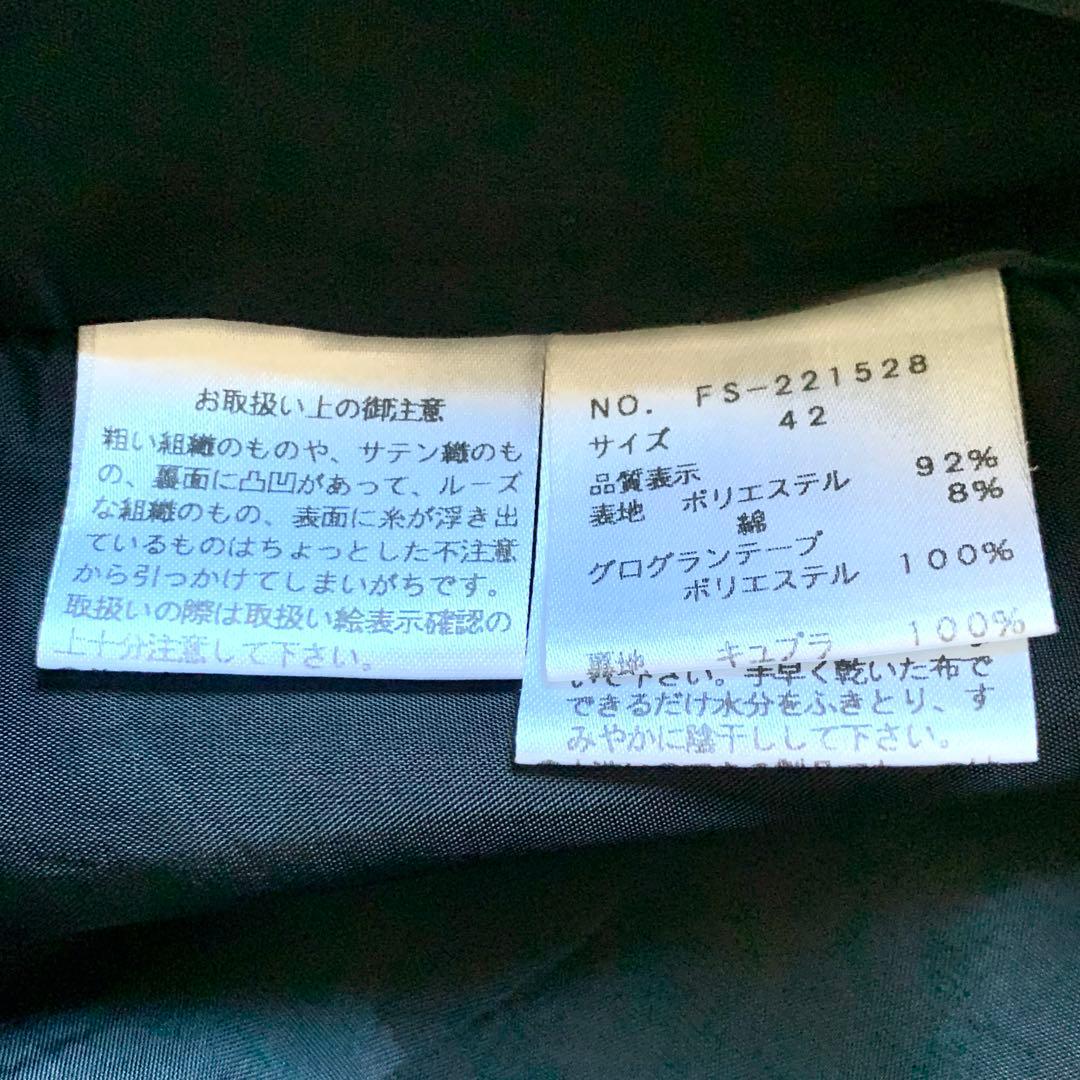 お取扱い上の御注意
粗い組織のものや、サテン織のも
の、裏面に凸凹があって、ルーズ
な組織のもの、表面に糸が浮き出
ているものはちょっとした不注意
から引っかけてしまいがちです。
取扱いの際は取扱い絵表示確認の
上十分注意して下さい。
NO. FS-221528
サイズ 42
品質表示
表地 ポリエステル 92%
綿 8%
グログランテープ
ポリエステル 100%
裏地 キュプラ 100%
下さい。手早く乾いた布で
できるだけ水分をふきとり、す
みやかに陰干しして下さい。